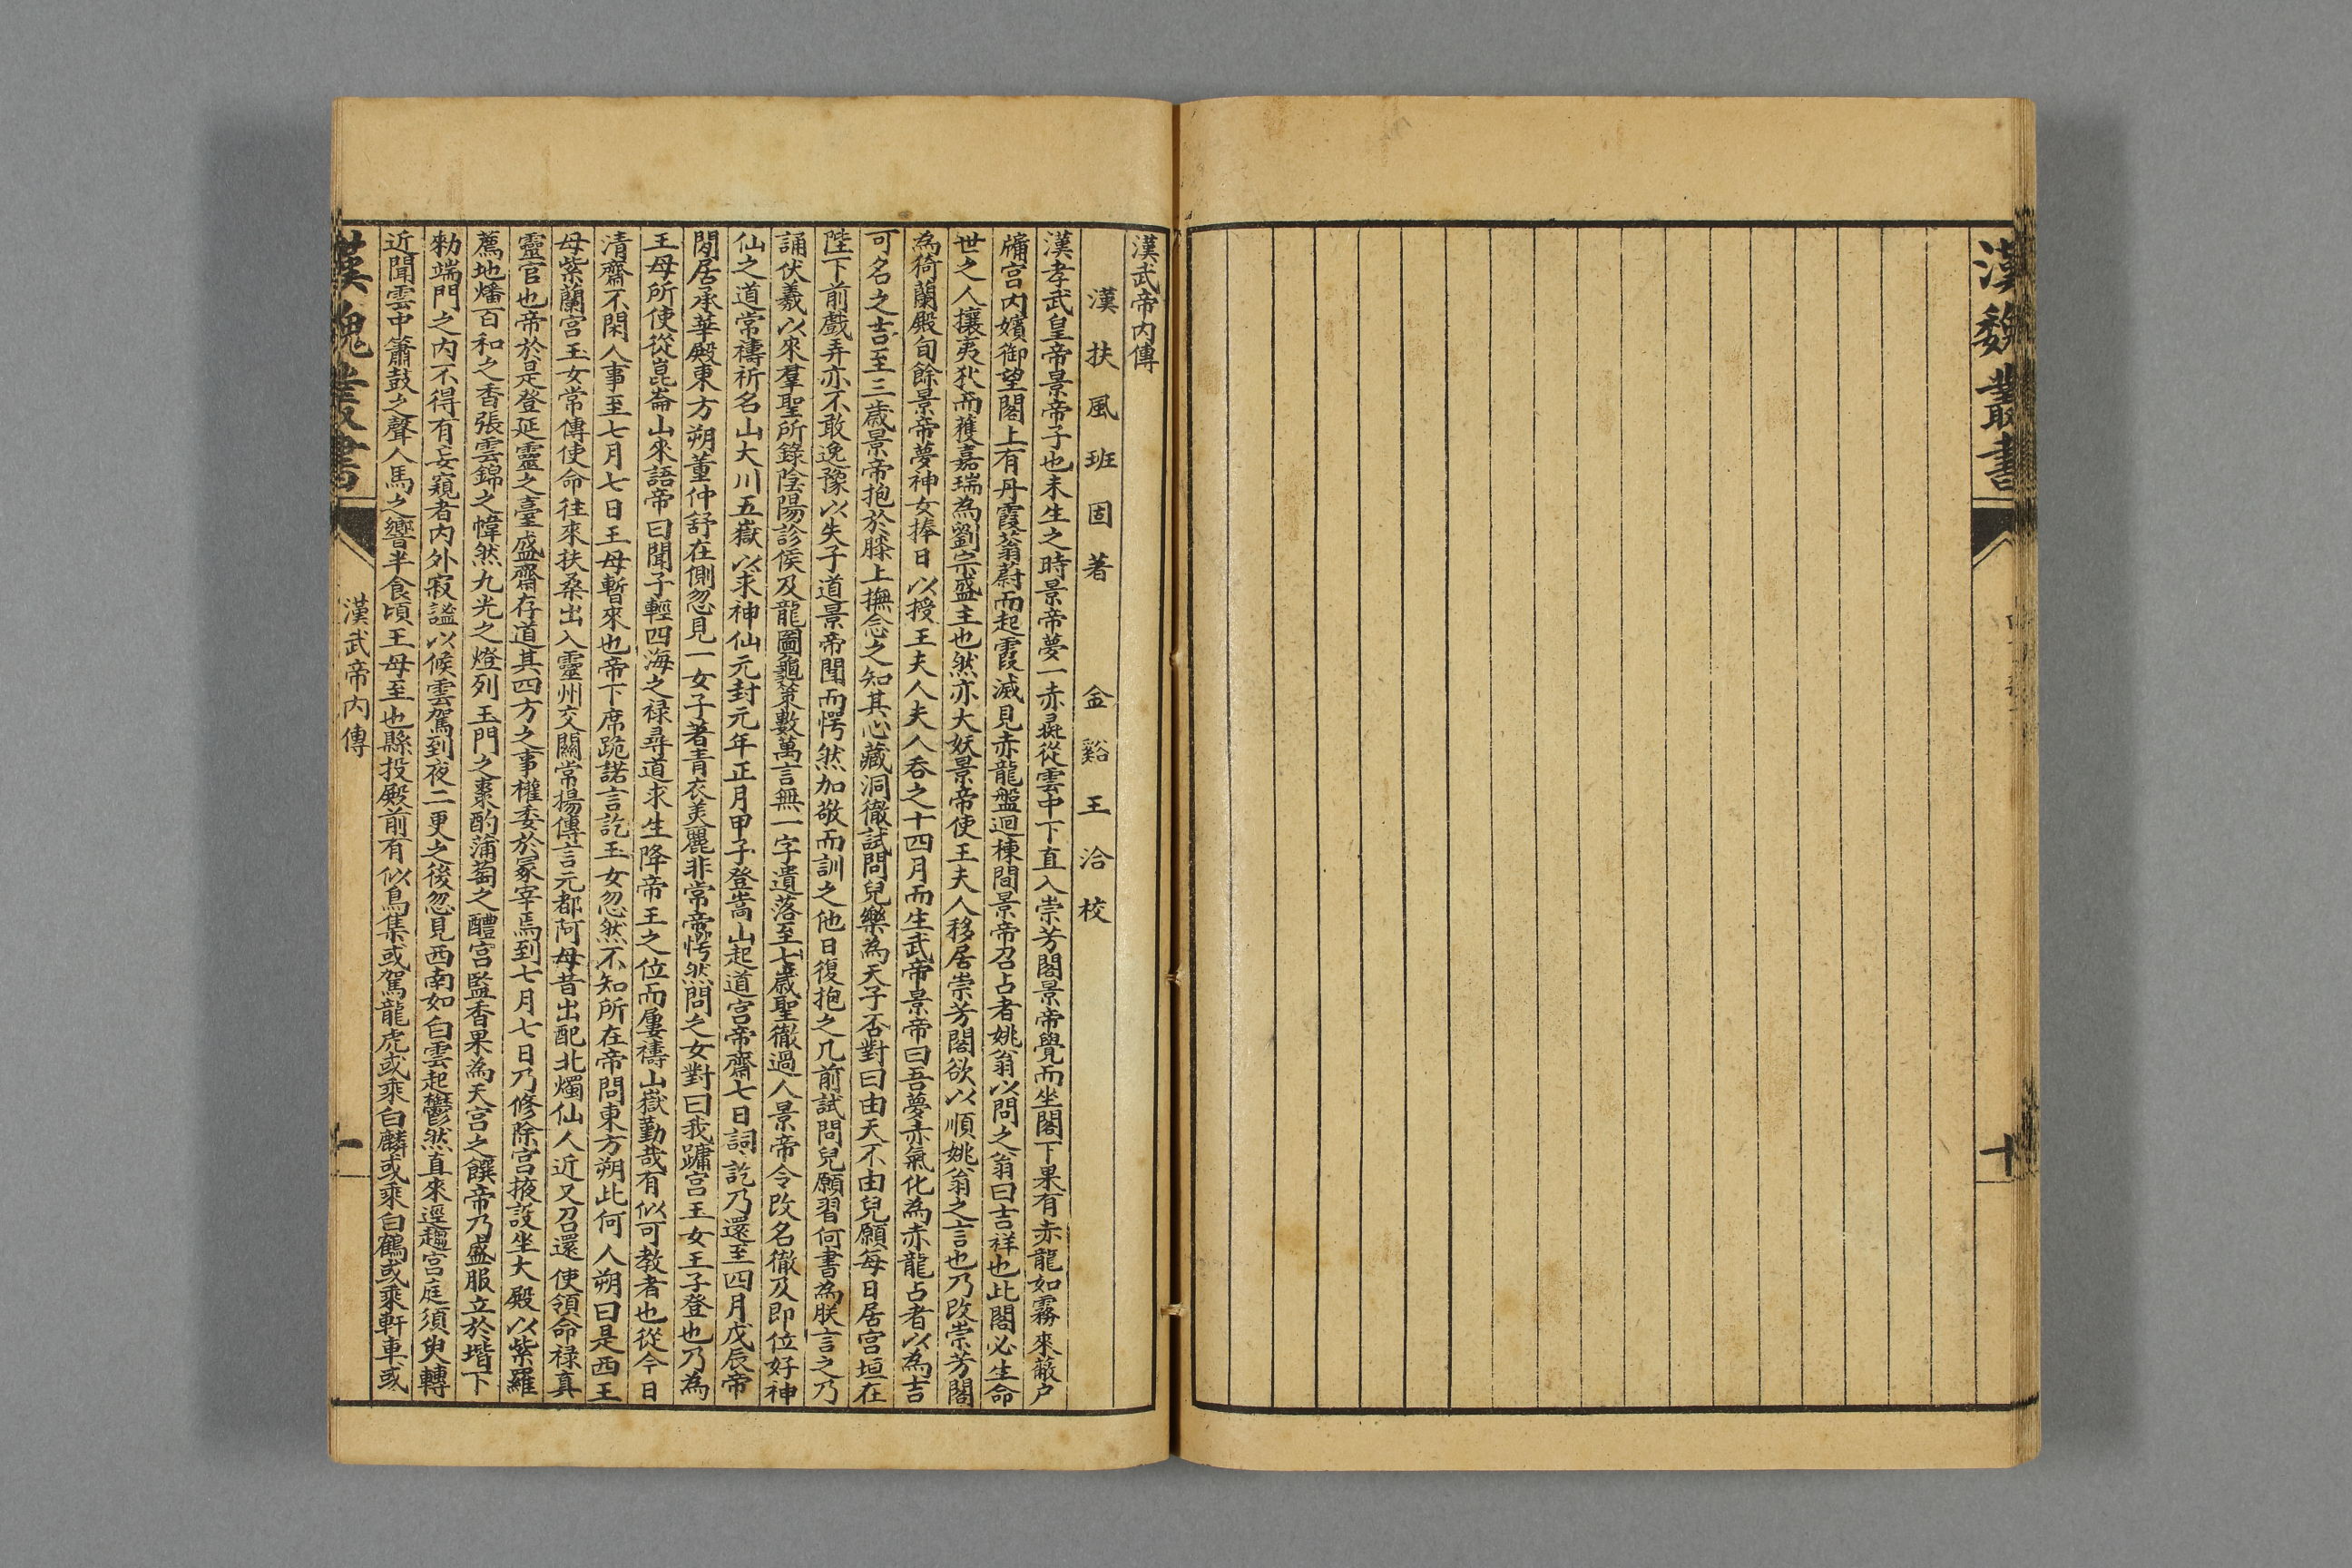 漢魏叢書
十
漢武帝內傳
漢扶風班固著　金谿王洽校
漢孝武皇帝景帝子也未生之時景帝夢一赤彘從雲中下直入崇芳閣景帝覺而坐閣下果有赤龍如霧來蔽户
牖宮內嬪御望閣上有丹霞蓊蔚而起霞滅見赤龍盤迴棟間景帝召占者姚翁以問之翁曰吉祥也此閣必生命
世之人攘夷狄而獲嘉瑞為劉宗盛主也然亦大妖景帝使王夫人移居崇芳閣欲以順姚翁之言也乃改崇芳閣
為猗蘭殿旬餘景帝夢神女捧日以授王夫人夫人吞之十四月而生武帝景帝曰吾夢赤氣化為赤龍占者以為吉
可名之吉至三歲景帝抱於膝上撫念之知其心藏洞徹試問兒樂為天子否對曰由天不由兒願每日居宮垣在
陛下前戲弄亦不敢逸豫以失子道景帝聞而愕然加敬而訓之他日復抱之几前試問兒願習何書為朕言之乃
誦伏羲以來羣聖所錄陰陽診候及龍圖龜策數萬言無一字遺落至七歲聖徹過人景帝令改名徹及即位好神
仙之道常禱祈名山大川五嶽以求神仙元封元年正月甲子登嵩山起道宮帝齋七日詞訖乃還至四月戊辰帝
閒居承華殿東方朔董仲舒在側忽見一女子著青衣美麗非常帝愕然問之女對曰我墉宮玉女王子登也乃為
王母所使從崑崙山來語帝曰聞子輕四海之祿尋道求生降帝王之位而屢禱山嶽勤哉有似可教者也從今日
清齋不閑人事至七月七日王母暫來也帝下席跪諾言訖玉女忽然不知所在帝問東方朔此何人朔曰是西王
母紫蘭宮玉女常傳使命往來扶桑出入靈州交關常揚傳言元都阿母昔出配北燭仙人近又召還使領命祿真
靈官也帝於是登延靈之臺盛齋存道其四方之事權委於冢宰焉到七月七日乃修除宮掖設坐大殿以紫羅
薦地燔百和之香張雲錦之幃然九光之燈列玉門之棗酌蒲萄之醴宮監香果為天宮之饌帝乃盛服立於堦下
勑端門之內不得有妄窺者內外寂謐以候雲駕到夜二更之後忽見西南如白雲起鬱然直來逕趨宮庭須臾轉
近聞雲中簫鼓之聲人馬之響半食頃王母至也縣投殿前有似鳥集或駕龍虎或乘白麟或乘白鶴或乘軒車或
漢魏叢書
漢武帝內傳
一